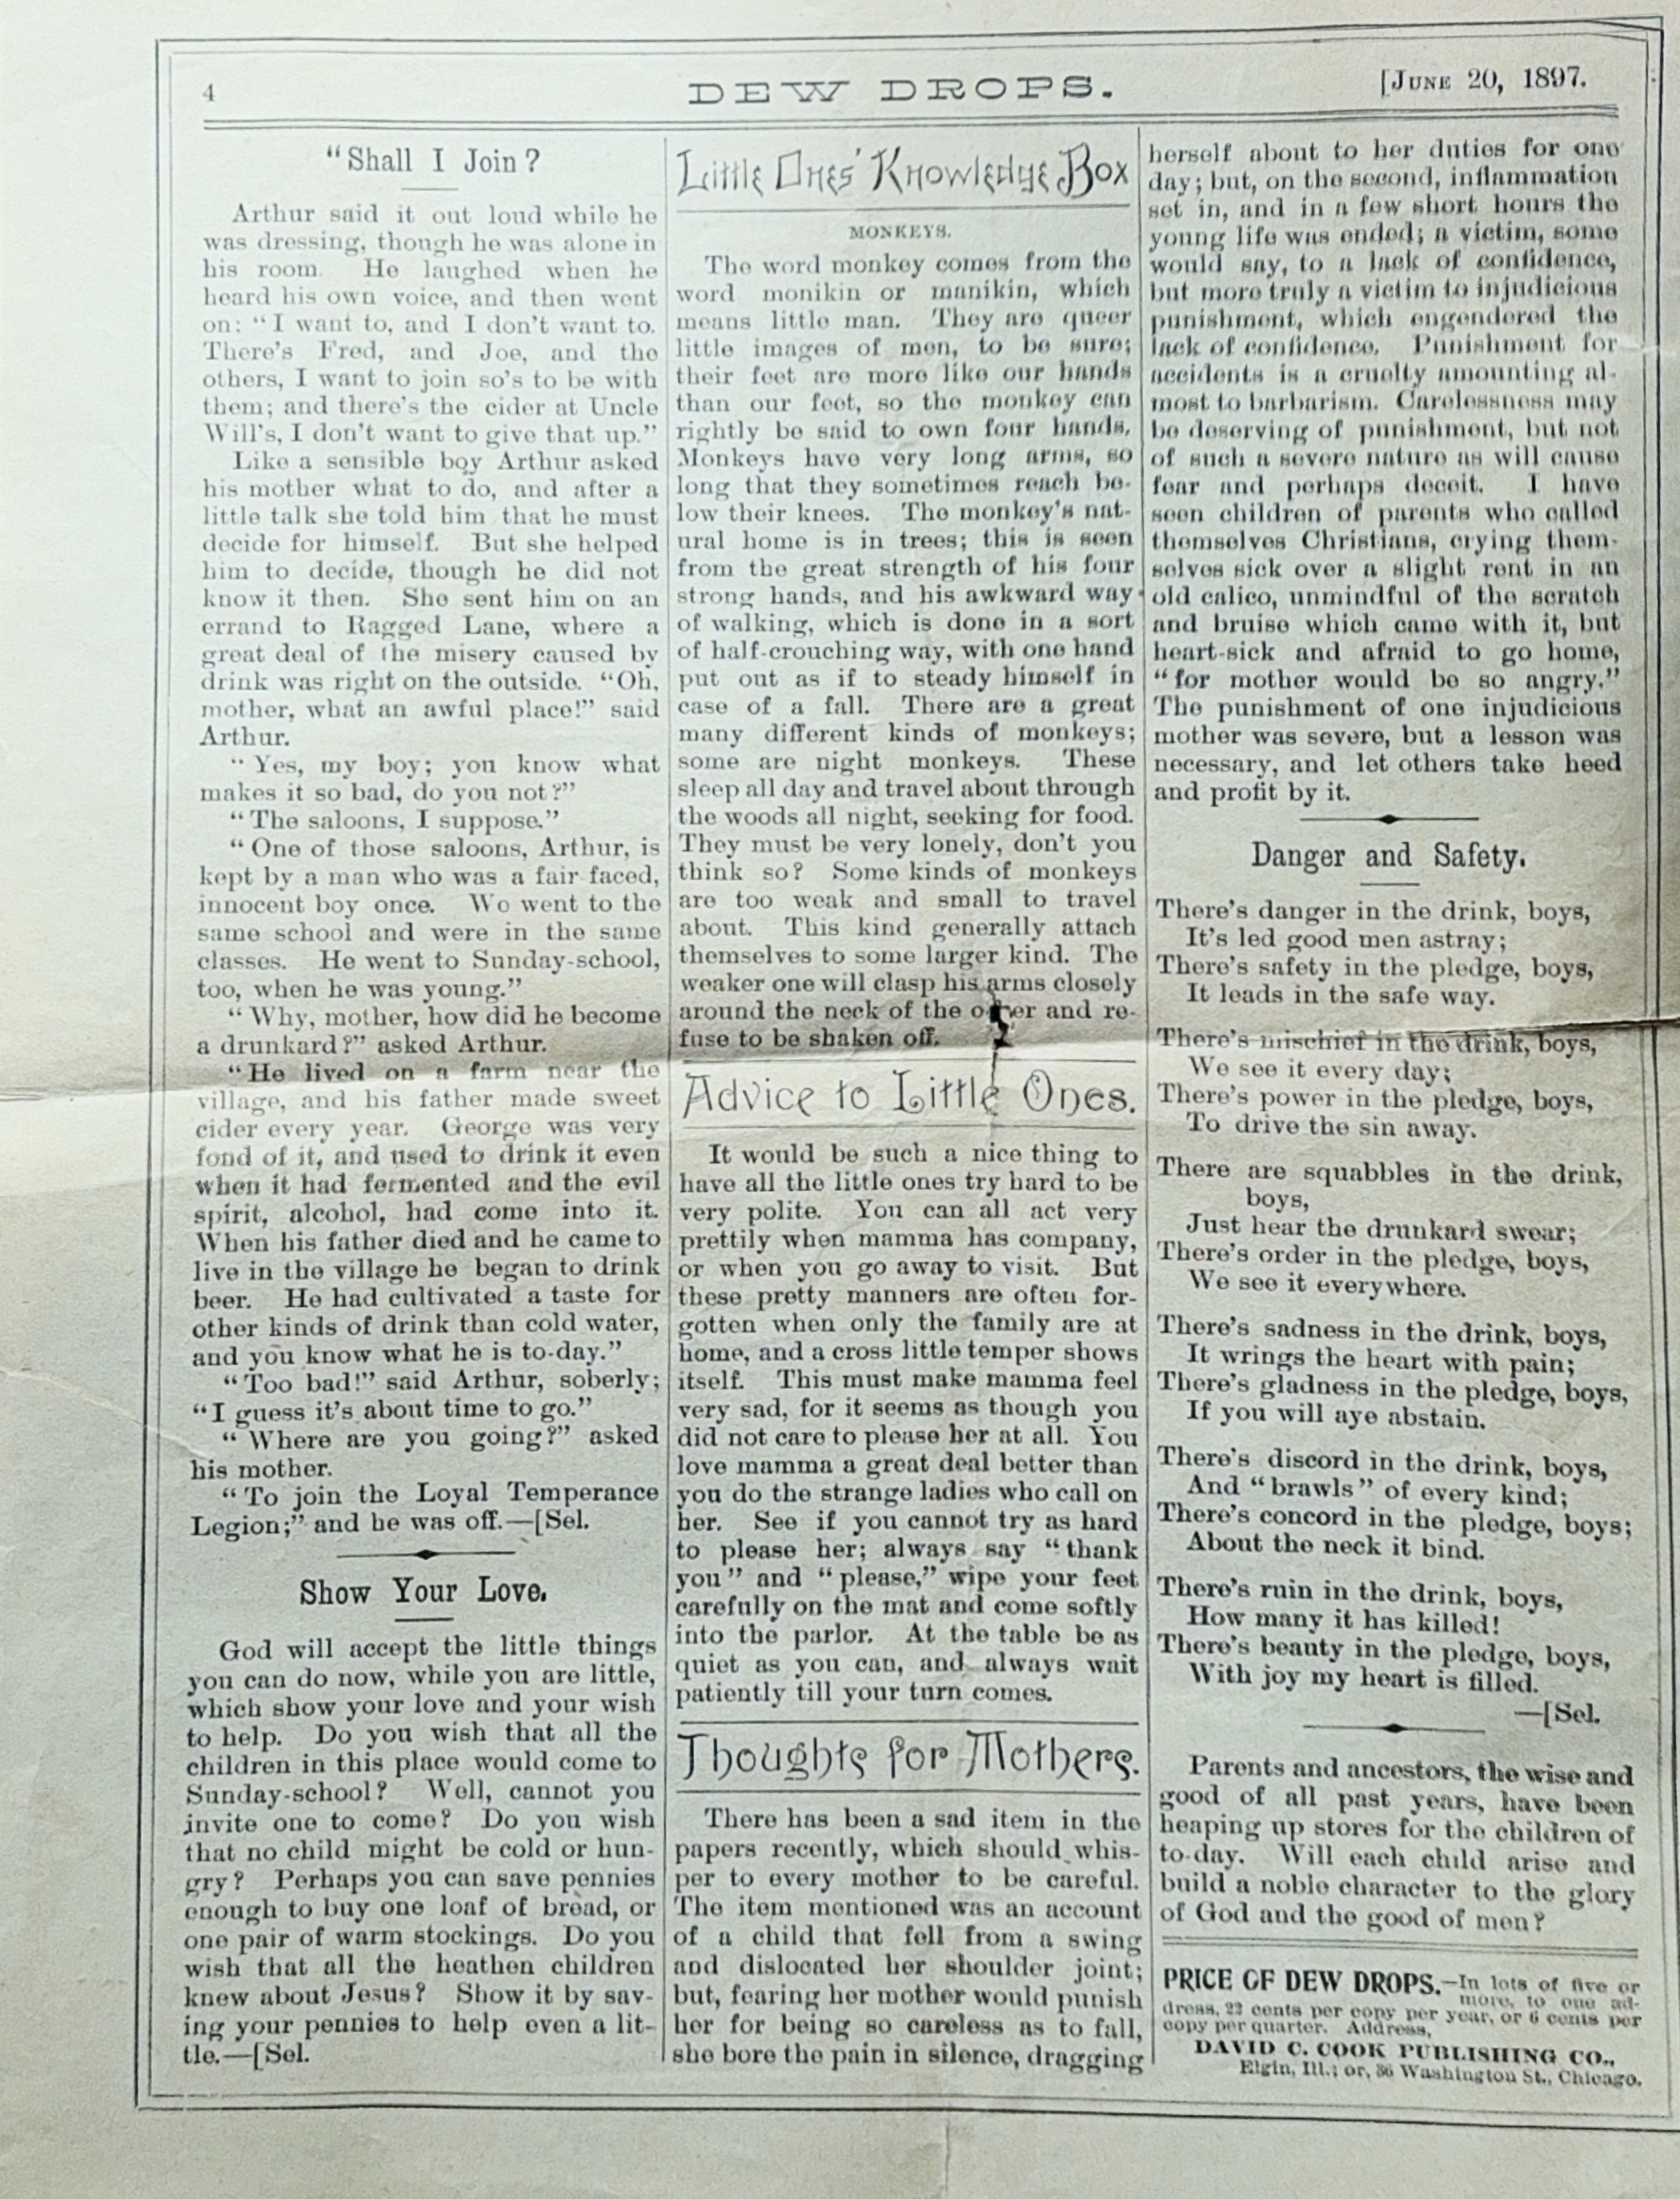 4
DEW DROPS.
[JUNE 20, 1897.
"Shall I Join?
Arthur said it out loud while he
was dressing, though he was alone in
his room He laughed when he
heard his own voice, and then went
on: "I want to, and I don't want to.
There's Fred, and Joe, and the
others, I want to join so's to be with
them; and there's the cider at Uncle
Will's, I don't want to give that up."
Like a sensible boy Arthur asked
his mother what to do, and after a
little talk she told him that he must
decide for himself. But she helped
him to decide, though he did not
know it then. She sent him on an
errand to Ragged Lane, where a
great deal of the misery caused by
drink was right on the outside. "Oh,
mother, what an awful place!" said
Arthur.
"Yes, my boy; you know what
makes it so bad, do you not?"
"The saloons, I suppose."
"One of those saloons, Arthur, is
kept by a man who was a fair faced,
innocent boy once. We went to the
same school and were in the same
classes. He went to Sunday-school,
too, when he was young."
"Why, mother, how did he become
a drunkard?" asked Arthur.
"He lived on a farm near the
village, and his father made sweet
cider every year. George was very
fond of it, and used to drink it even
when it had fermented and the evil
spirit, alcohol, had come into it.
When his father died and he came to
live in the village he began to drink
beer. He had cultivated a taste for
other kinds of drink than cold water,
and you know what he is to-day."
"Too bad!" said Arthur, soberly;
"I guess it's about time to go."
"Where are you going?" asked
his mother.
"To join the Loyal Temperance
Legion;" and he was off.—[Sel.
Show Your Love.
God will accept the little things
you can do now, while you are little,
which show your love and your wish
to help. Do you wish that all the
children in this place would come to
Sunday-school? Well, cannot you
invite one to come? Do you wish
that no child might be cold or hun-
gry? Perhaps you can save pennies
enough to buy one loaf of bread, or
one pair of warm stockings. Do you
wish that all the heathen children
knew about Jesus? Show it by sav-
ing your pennies to help even a lit-
tle.—[Sel.
Little Ones' Knowledge Box
MONKEYS.
The word monkey comes from the
word monikin or manikin, which
means little man. They are queer
little images of men, to be sure;
their feet are more like our hands
than our feet, so the monkey can
rightly be said to own four hands.
Monkeys have very long arms, so
long that they sometimes reach be-
low their knees. The monkey's nat-
ural home is in trees; this is seen
from the great strength of his four
strong hands, and his awkward way
of walking, which is done in a sort
of half-crouching way, with one hand
put out as if to steady himself in
case of a fall. There are a great
many different kinds of monkeys;
some are night monkeys. These
sleep all day and travel about through
the woods all night, seeking for food.
They must be very lonely, don't you
think so? Some kinds of monkeys
are too weak and small to travel
about. This kind generally attach
themselves to some larger kind. The
weaker one will clasp his arms closely
around the neck of the other and re-
fuse to be shaken off.
Advice to Little Ones.
It would be such a nice thing to
have all the little ones try hard to be
very polite. You can all act very
prettily when mamma has company,
or when you go away to visit. But
these pretty manners are often for-
gotten when only the family are at
home, and a cross little temper shows
itself. This must make mamma feel
very sad, for it seems as though you
did not care to please her at all. You
love mamma a great deal better than
you do the strange ladies who call on
her. See if you cannot try as hard
to please her; always say "thank
you" and "please," wipe your feet
carefully on the mat and come softly
into the parlor. At the table be as
quiet as you can, and always wait
patiently till your turn comes.
Thoughts for Mothers.
There has been a sad item in the
papers recently, which should whis-
per to every mother to be careful.
The item mentioned was an account
of a child that fell from a swing
and dislocated her shoulder joint;
but, fearing her mother would punish
her for being so careless as to fall,
she bore the pain in silence, dragging
herself about to her duties for one
day; but, on the second, inflammation
set in, and in a few short hours the
young life was ended; a victim, some
would say, to a lack of confidence,
but more truly a victim to injudicious
punishment, which engendered the
lack of confidence. Punishment for
accidents is a cruelty amounting al-
most to barbarism. Carelessness may
be deserving of punishment, but not
of such a severe nature as will cause
fear and perhaps deceit. I have
seen children of parents who called
themselves Christians, crying them-
selves sick over a slight rent in an
old calico, unmindful of the scratch
and bruise which came with it, but
heart-sick and afraid to go home,
"for mother would be so angry."
The punishment of one injudicious
mother was severe, but a lesson was
necessary, and let others take heed
and profit by it.
Danger and Safety.
There's danger in the drink, boys,
It's led good men astray;
There's safety in the pledge, boys,
It leads in the safe way.
There's mischief in the drink, boys,
We see it every day;
There's power in the pledge, boys,
To drive the sin away.
There are squabbles in the drink,
boys,
Just hear the drunkard swear;
There's order in the pledge, boys,
We see it everywhere.
There's sadness in the drink, boys,
It wrings the heart with pain;
There's gladness in the pledge, boys,
If you will aye abstain.
There's discord in the drink, boys,
And "brawls" of every kind;
There's concord in the pledge, boys;
About the neck it bind.
There's ruin in the drink, boys,
How many it has killed!
There's beauty in the pledge, boys,
With joy my heart is filled.
—[Sel.
Parents and ancestors, the wise and
good of all past years, have been
heaping up stores for the children of
to-day. Will each child arise and
build a noble character to the glory
of God and the good of men?
PRICE OF DEW DROPS.—In lots of five or
more, to one ad-
dress, 22 cents per copy per year, or 6 cents per
copy per quarter. Address,
DAVID C. COOK PUBLISHING CO.,
Elgin, Ill.; or, 36 Washington St., Chicago.